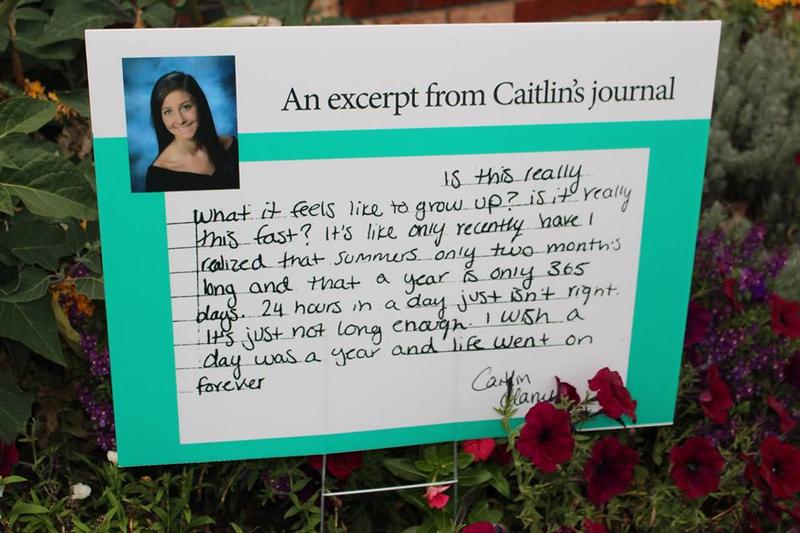 An excerpt from Caitlin's journal
Is this really
what it feels like to grow up? is it really
this fast? It's like only recently have I
realized that summers only two months
long and that a year is only 365
days. 24 hours in a day just isn't right.
It's just not long enough. I wish a
day was a year and life went on
forever
Caitlin